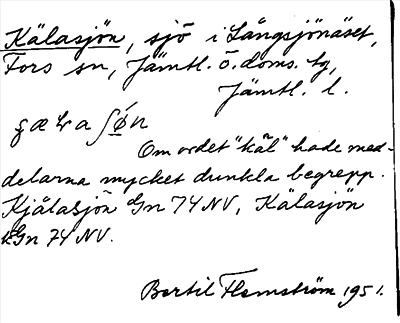 Kälasjön, sjö i Långsjönäset,
Fors sn, Jämtl. ö. doms. tg,
Jämtl. l.
Om ordet "käl" hade med-
delarna mycket dunkla begrepp.
Kjålasjön Gn 74 NV, Kälasjön
Gn 74 NV.
Bertil Flemström 1951.